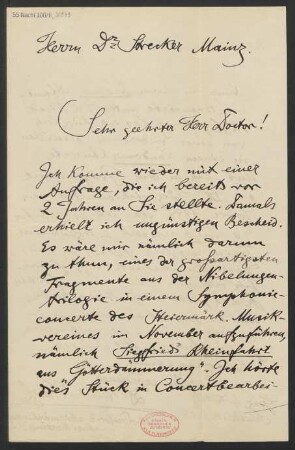 55 Nachl 100/B,
Herrn Dr Strecker Mainz.
Sehr geehrter Herr Doctor!
Ich komme wieder mit einer
Anfrage, die ich bereits vor
2 Jahren an Sie stellte. Damals
erhielt ich ungünstigen Bescheid.
Es wäre mir nämlich darum
zu thun, eines der grossartigsten
Fragmente aus der Nibelungen-
trilogie in einem Symphonie-
concerte des Steiermärk. Musik-
vereines im November aufzuführen,
nämlich „Siegfrieds Rheinfahrt
aus Götterdämmerung“. Ich hörte
dies Stück in Concertbearbei-